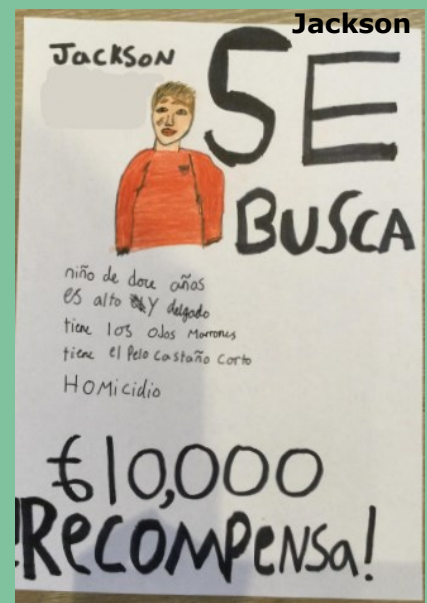 Jackson
Jackson
SE
BUSCA
niño de doce años
es alto y delgado
tiene los ojos marrones
tiene el Pelo castaño corto
HOMicidio
€10,000
¡RecoMPeNSa!